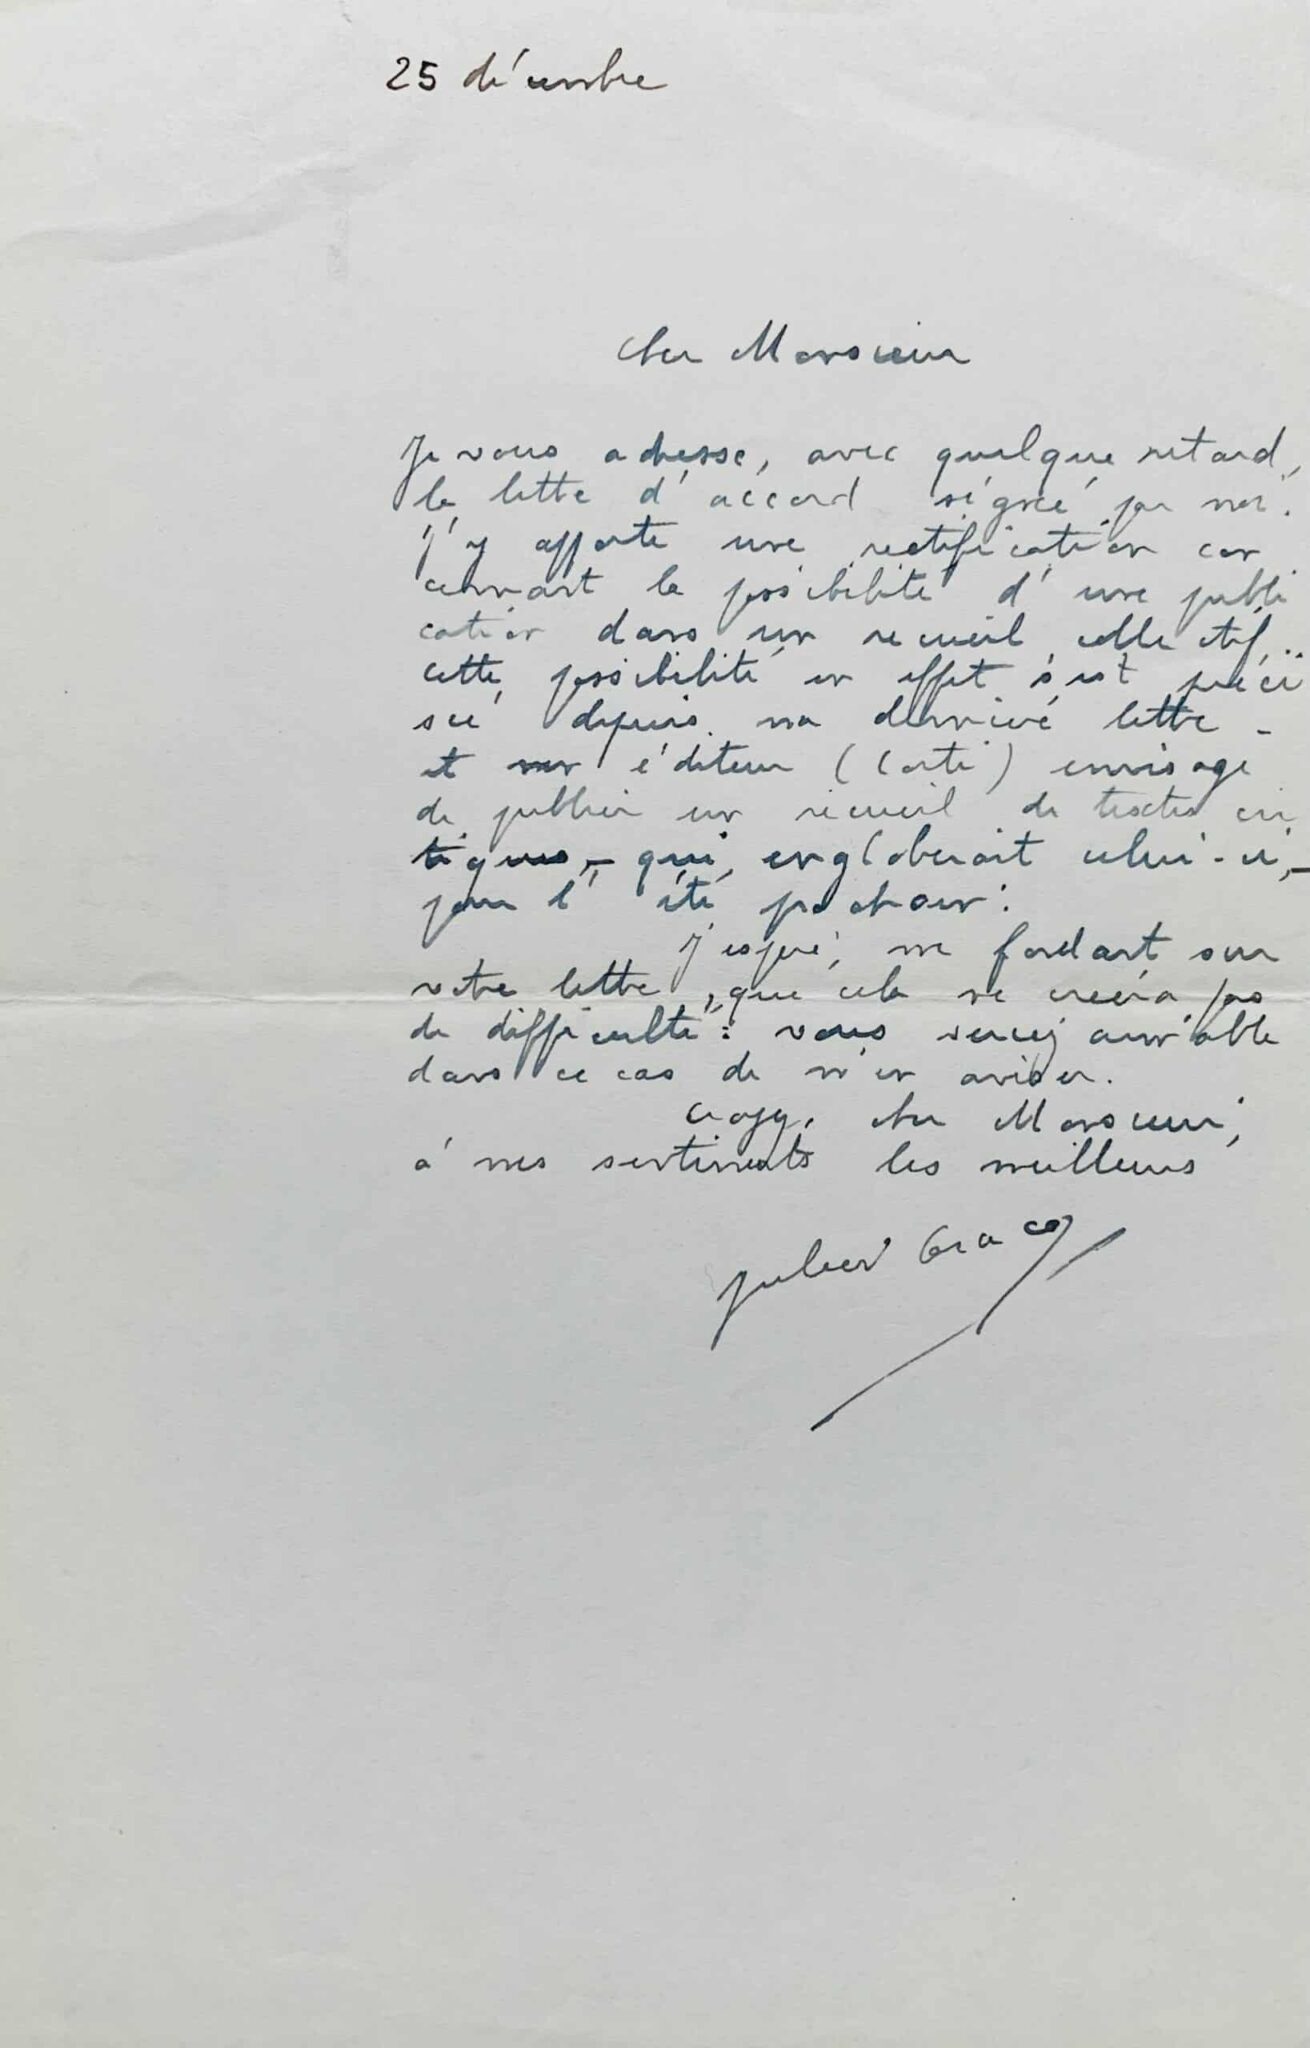 25 décembre
Cher Monsieur
Je vous adresse, avec quelque retard,
la lettre d'accord signée par moi.
J'y apporte une rectification con
cernant la possibilité d'une publi
cation dans un recueil collectif..
cette possibilité en effet s'est préci
sée depuis ma dernière lettre -
et mon éditeur (Corti) envisage
de publier un recueil de textes cri
tiques, - qui engloberait celui-ci, -
pour l'été prochain.
J'espère, me fondant sur
votre lettre, que cela ne créera pas
de difficulté : vous seriez aimable
dans ce cas de m'en aviser.
Croyez, cher Monsieur,
à mes sentiments les meilleurs
Julien Gracq